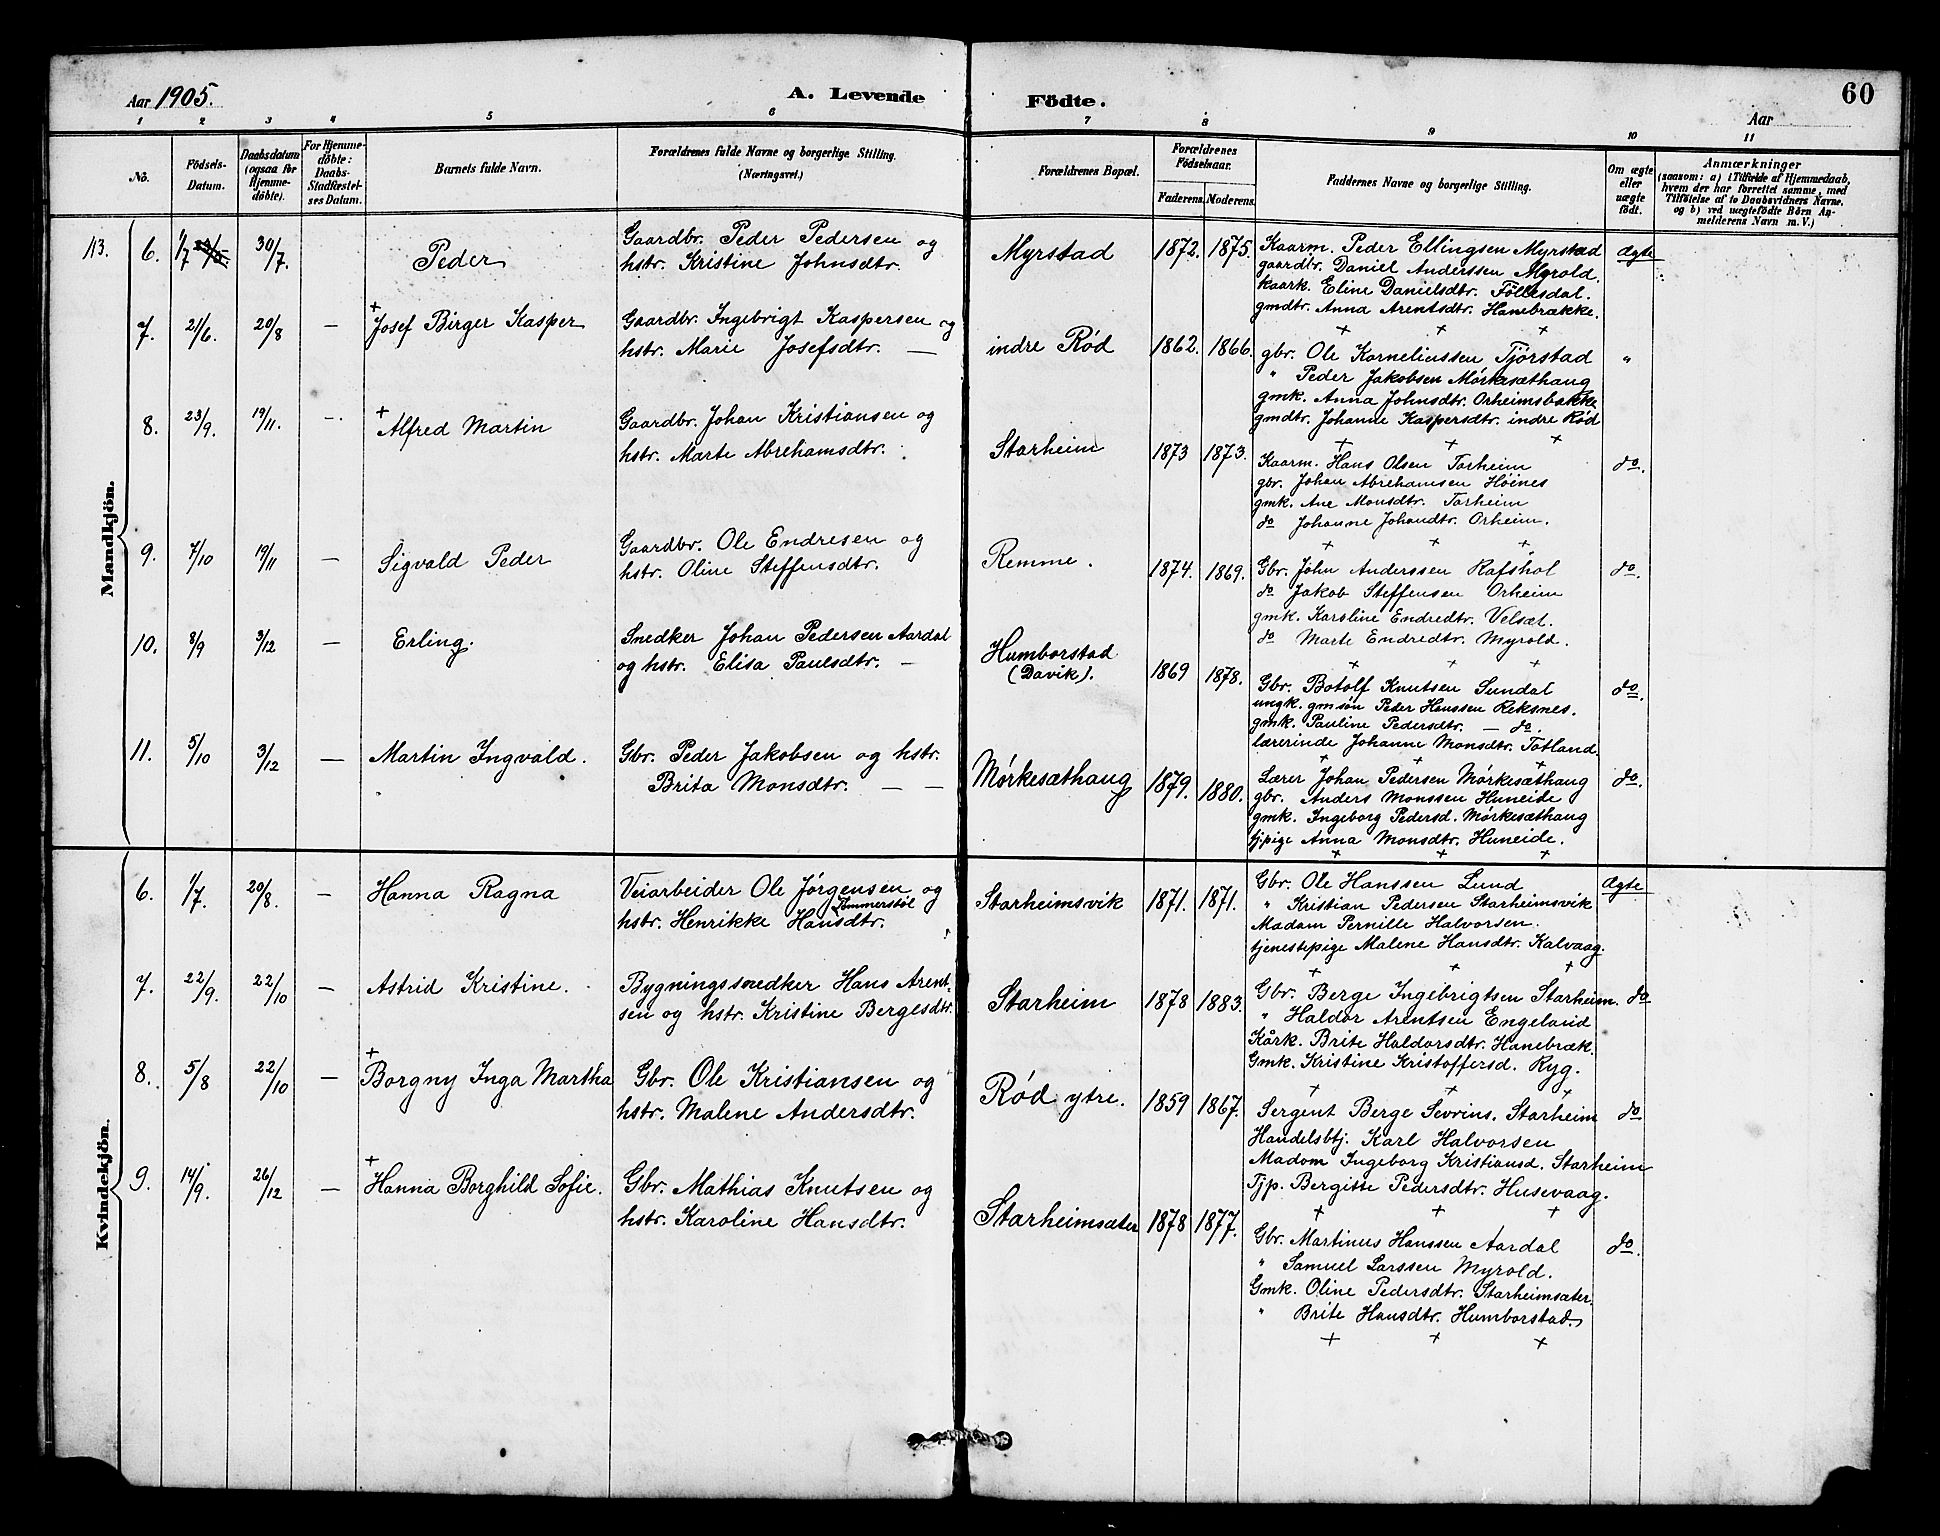 Aar 1905.
A. Levende Födte.
Aar
60
1 2 3 4 5 6 7 8 9 10 11
No.
Födsels-
Datum.
Daabsdatum
(ogsaa for
Hjemme-
döbte).
For Hjemme-
döbte:
Daabs-
Stadfæstel-
ses Datum.
Barnets fulde Navn.
Forældrenes fulde Navne og borgerlige Stilling.
(Næringsvei.)
Forældrenes Bopæl.
Forældrenes
Födselsaar.
Faderens. Moderens.
Faddernes Navne og borgerlige Stilling.
Om ægte
eller
uægte
födt.
Anmærkninger
(saasom: a) i Tilfælde af Hjemmedaab,
hvem der har forrettet samme, med
Tilföielse af to Daabsvidners Navne.
og b) ved uægtefödte Börn An-
melderens Navn m. V.)
Mandkjön.
113. 6. 1/7 30/7. Peder
Gaardbr. Peder Pedersen og
hstr. Kristine Johnsdtr.
Myrstad 1872. 1875.
Kaarm. Peder Ellingsen Myrstad
gaardbr. Daniel Anderssen Myrold.
kaark. Eline Danielsdtr. Föllesdal.
gmdtr. Anna Arentsdtr. Hanebrække.
Ægte
+ + +
7. 21/6. 20/8 — + Josef Birger Kasper
Gaardbr. Ingebrigt Kaspersen og
hstr. Marie Josefsdtr. —
indre Rød 1862. 1866.
gbr. Ole Korneliussen Tjörstad
" Peder Jakobsen Mörkesæthaug
gmk. Anna Johnsdtr. Orheimsbakke
gmdtr. Johanne Kaspersdtr. indre Rød
"
+ + +
8. 23/9. 19/11. — + Alfred Martin
Gaardbr. Johan Kristiansen og
hstr. Marte Abrehamsdtr.
Starheim 1873 1873.
Kaarm. Hans Olsen Torheim
gbr. Johan Abrehamsen Höines
gmk. Ane Monsdtr. Torheim
do Johanne Johandtr. Orheim.
do.
+ + +
9. 7/10 19/11 — Sigvald Peder
Gaardbr. Ole Endresen og
hstr. Oline Steffensdtr.
Remme. 1874. 1869.
Gbr. John Anderssen Rafshol
do Jakob Steffensen Orheim
gmk. Karoline Endredtr. Velsæt.
do Marte Endredtr. Myrold.
do.
+ + +
10. 8/9 3/12 — Erling.
Snedker Johan Pedersen Aardal
og hstr. Elisa Paulsdtr. —
Humborstad
(Davik). 1869 1878.
Gbr. Botolf Knutsen Sundal
ungk. gmsön Peder Hanssen Reksnes.
gmk. Pauline Pedersdtr. — do.
lærerinde Johanne Monsdtr. Totland.
do.
+ + +
11. 5/10 3/12 — Martin Ingvald.
Gbr. Peder Jakobsen og hstr.
Brita Monsdtr. — —
Mörkesæthaug 1879. 1880.
Lærer Johan Pedersen Mörkesæthaug
gbr. Anders Monssen Huneide
gmk. Ingeborg Pedersd. Mörkesæthaug
tj.pige Anna Monsdtr. Huneide.
do.
+ + +
Kvindekjön.
6. 1/7. 20/8. — Hanna Ragna
Veiarbeider Ole Jörgensen og
hstr. Henrikke Hansdtr.
Starheimsvik 1871. 1871.
Gbr. Ole Hanssen Lund
" Kristian Pedersen Starheimsvik
Madam Pernille Halvorsen.
tjenestepige Malene Hansdtr. Kalvaag.
Ægte
+ + +
7. 22/9. 22/10 — Astrid Kristine.
Bygningssnedker Hans Arent-
sen og hstr. Kristine Bergesdtr.
Starheim 1878 1883.
Gbr. Berge Ingebrigtsen Starheim.
" Haldor Arentsen Engeland
Kårk. Brite Haldorsdtr. Hanebræk.
Gmk. Kristine Kristoffersd. Ryg.
do
+ + +
8. 5/8 22/10 — + Borgny Inga Martha
Gbr. Ole Kristiansen og
hstr. Malene Andersdtr.
Rød ytre. 1859 1867.
Sergent Berge Sevrins. Starheim
Handelsbtj. Karl Halvorsen
Madam Ingeborg Kristiansd. Starheim
Tjp. Bergitte Pedersdtr. Husevaag.
do
+ + +
9. 14/9. 26/12 — + Hanna Borghild Sofie.
Gbr. Mathias Knutsen og
hstr. Karoline Hansdtr.
Starheimsæter 1878 1877.
Gbr. Martinus Hanssen Aardal
" Samuel Larssen Myrold.
Gmk. Oline Pedersdtr. Starheimsæter.
" Brite Hansdtr. Humborstad.
do.
+ + +